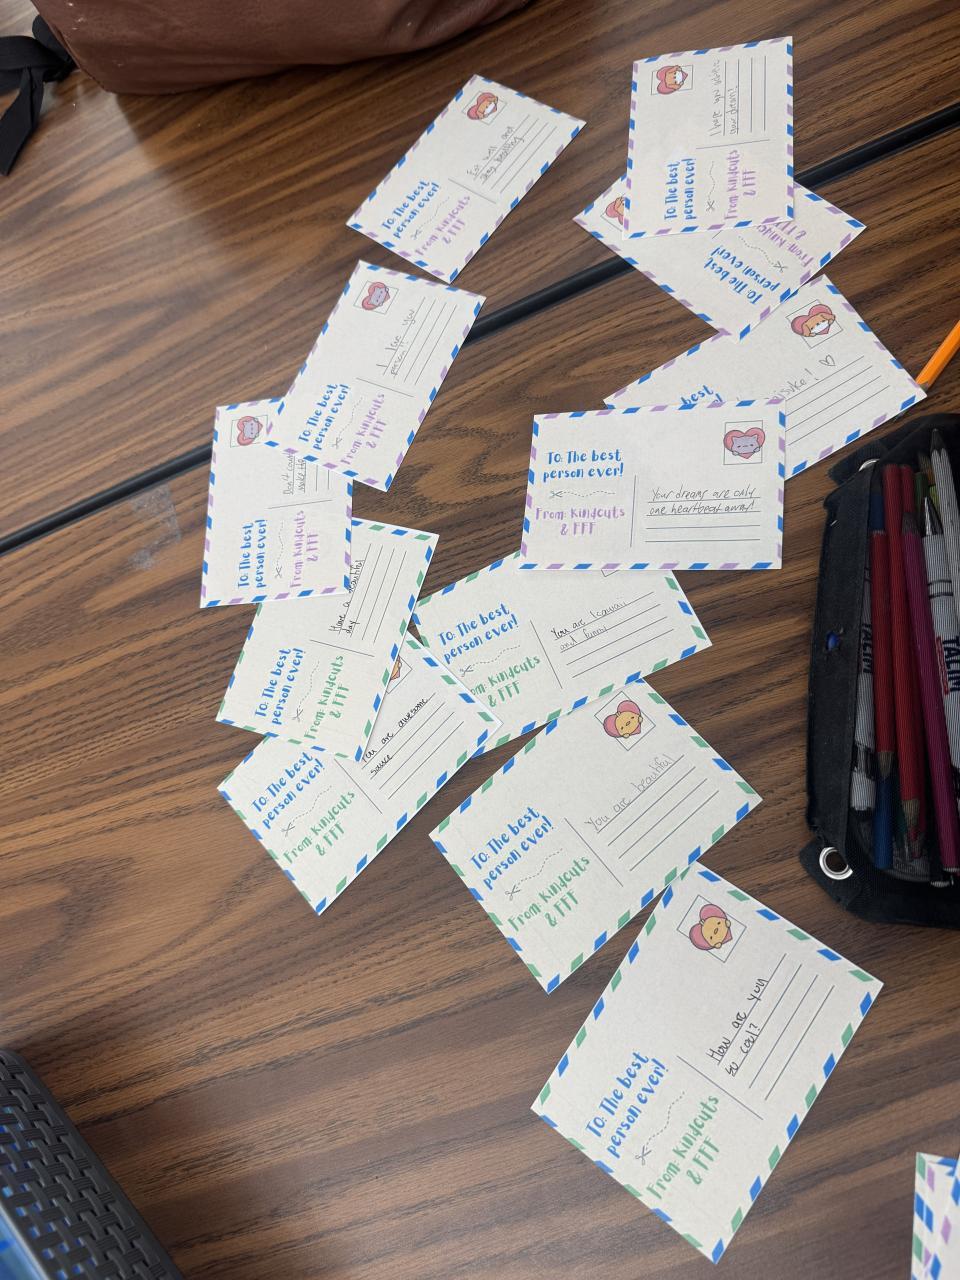 TO: The best
person ever!
From: Kindcuts
& FFF
Eat well and
stay
TO: The best
person ever!
From: Kindcuts
& FFF
I hope you
your dream!
TO: The best
person ever!
From: Kindcuts
& FFF
TO: The best
person ever!
From: Kindcuts
& FFF
I love you
person!!
best
! ♡
TO: The best
person ever!
From: Kindcuts
& FFF
Your dreams are only
one heartbeat away!
TO: The best
person ever!
From: Kindcuts
& FFF
Don't
make it
TO: The best
person ever!
From: Kindcuts
& FFF
Have a beautiful
day
TO: The best
person ever!
From: Kindcuts
& FFF
You are kawaii
and funny
TO: The best
person ever!
From: Kindcuts
& FFF
You are awesome
sauce
TO: The best
person ever!
From: Kindcuts
& FFF
You are beautiful
TO: The best
person ever!
From: Kindcuts
& FFF
How are you
so cool?